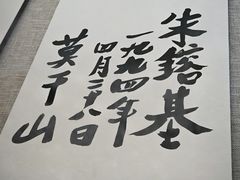 朱鎔基
一九九四年
四月二十八日
莫干山